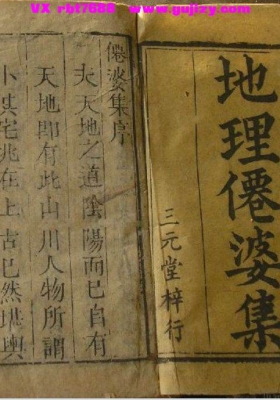 VX rbt7688  www.gujizy.com
地理僊婆集
三元堂梓行
僊婆集序
夫天地之道陰陽而已自有
天地即有此山川人物所謂
卜其宅兆在上古已然堪輿